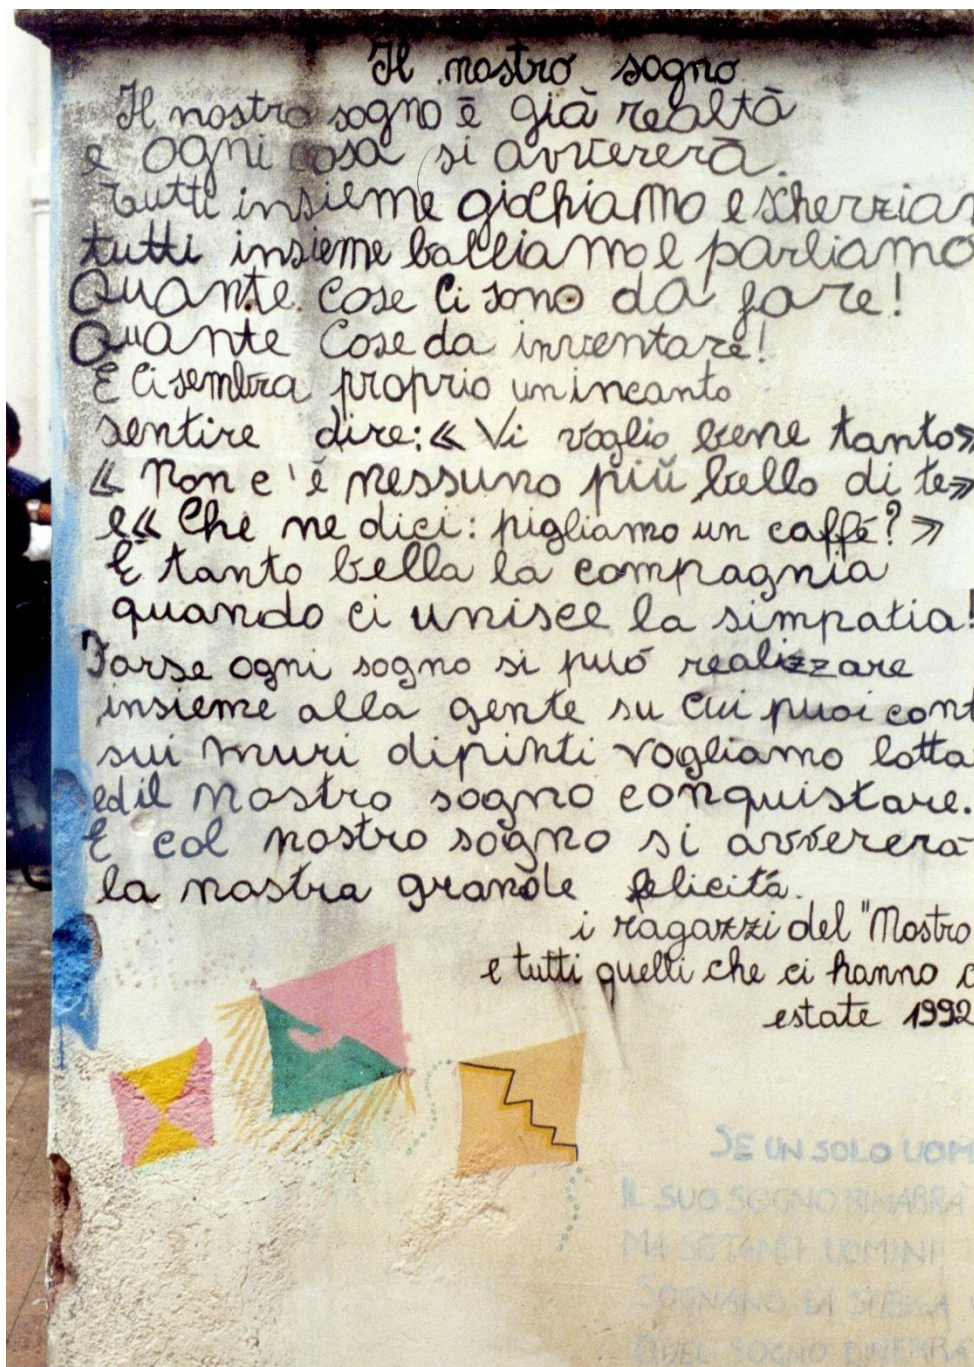 Il nostro sogno
Il nostro sogno è già realtà
e ogni cosa si avvererà.
tutti insieme giochiamo e scherzia
tutti insieme balliamo e parliamo
Quante cose ci sono da fare!
Quante cose da inventare!
E ci sembra proprio un incanto
sentire dire: « Vi voglio bene tanto»
« Non c'è nessuno più bello di te»
e« Che ne dici: pigliamo un caffè? »
È tanto bella la compagnia
quando ci unisce la simpatia!
Forse ogni sogno si può realizzare
insieme alla gente su cui puoi cont
sui muri dipinti vogliamo lotta
ed il nostro sogno conquistare.
E col nostro sogno si avvererà
la nostra grande felicità.
i ragazzi del "Mostro
e tutti quelli che ci hanno
estate 1992
SE UN SOLO UOM
IL SUO SOGNO RIMARRA
MA SE TANTI UOMINI
SOGNANO LA STESSA
QUEL SOGNO DIVERRA